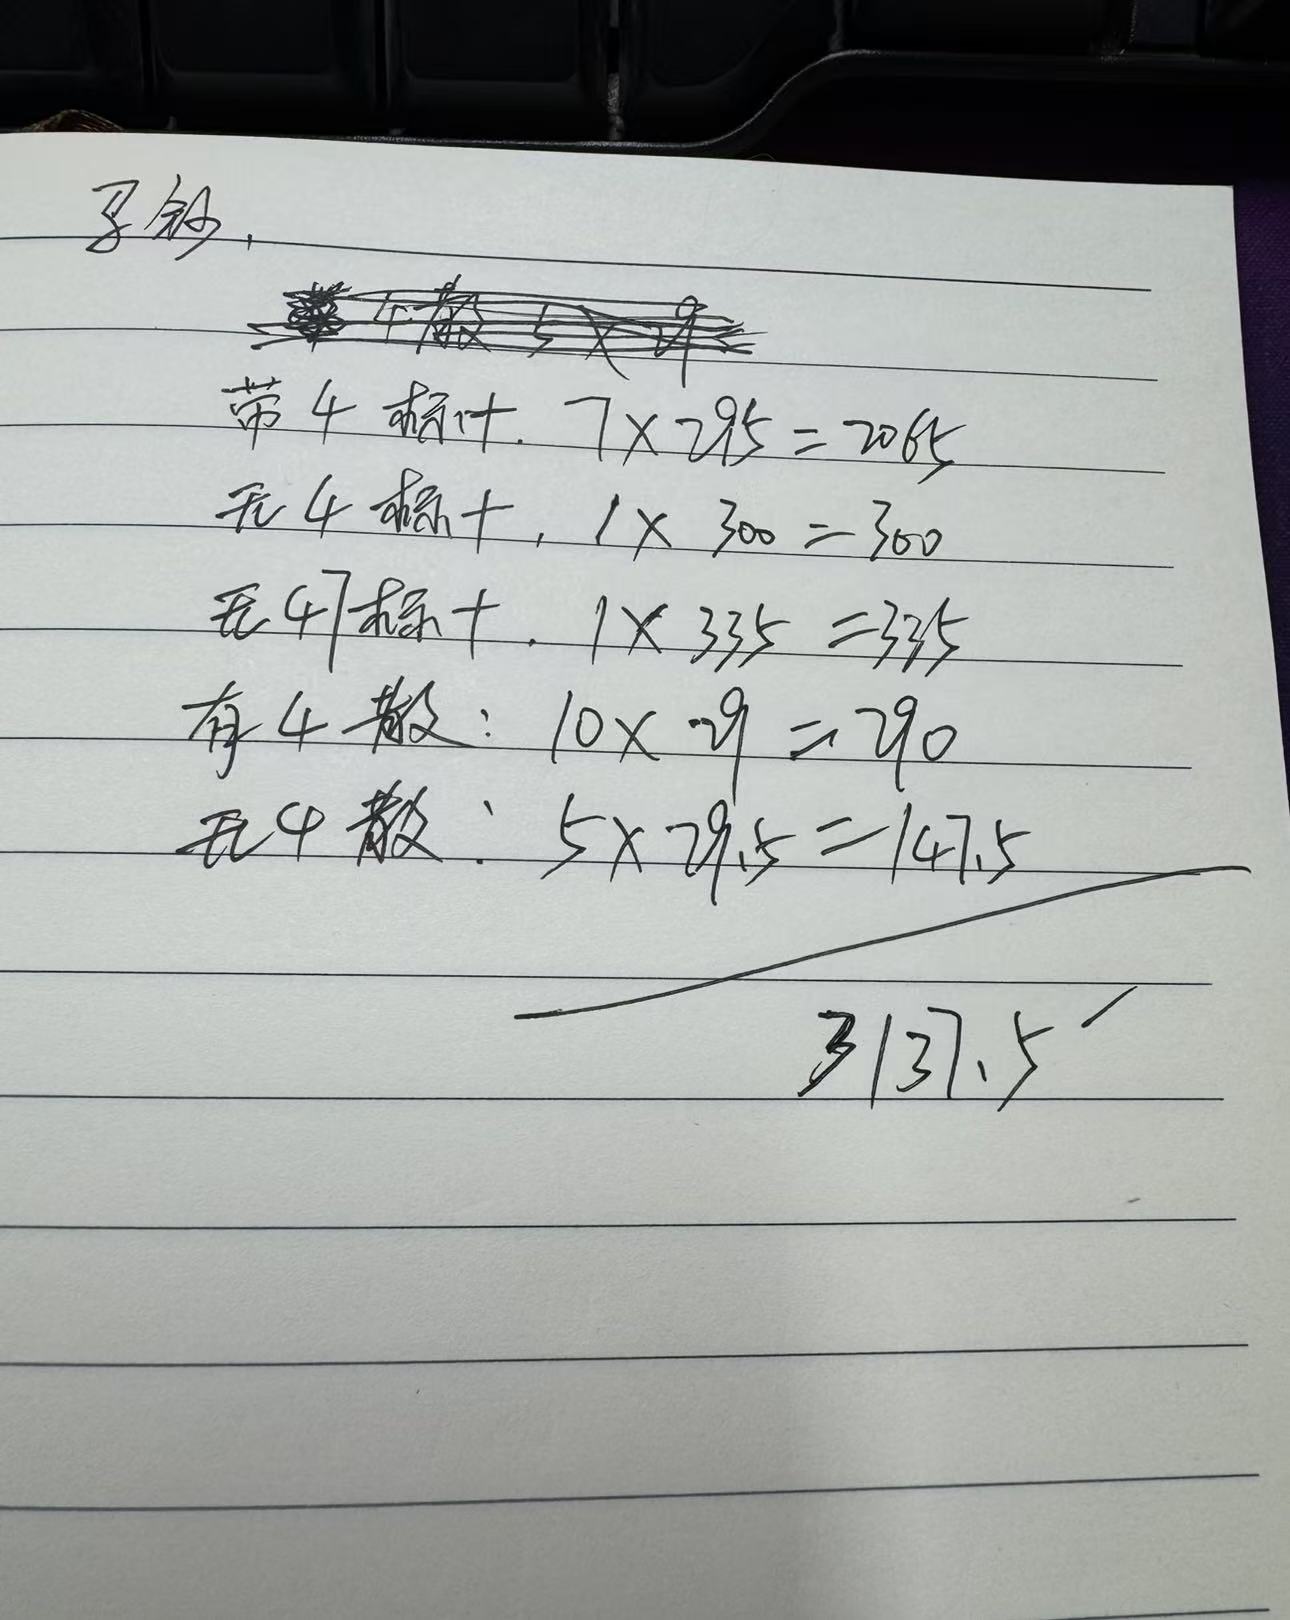 马钞,
4散 5×29
带4标十. 7×295=2065
无4标十, 1×300=300
无47标十. 1×335=335
有4散: 10×29=290
无4散: 5×29.5=147.5
3137.5